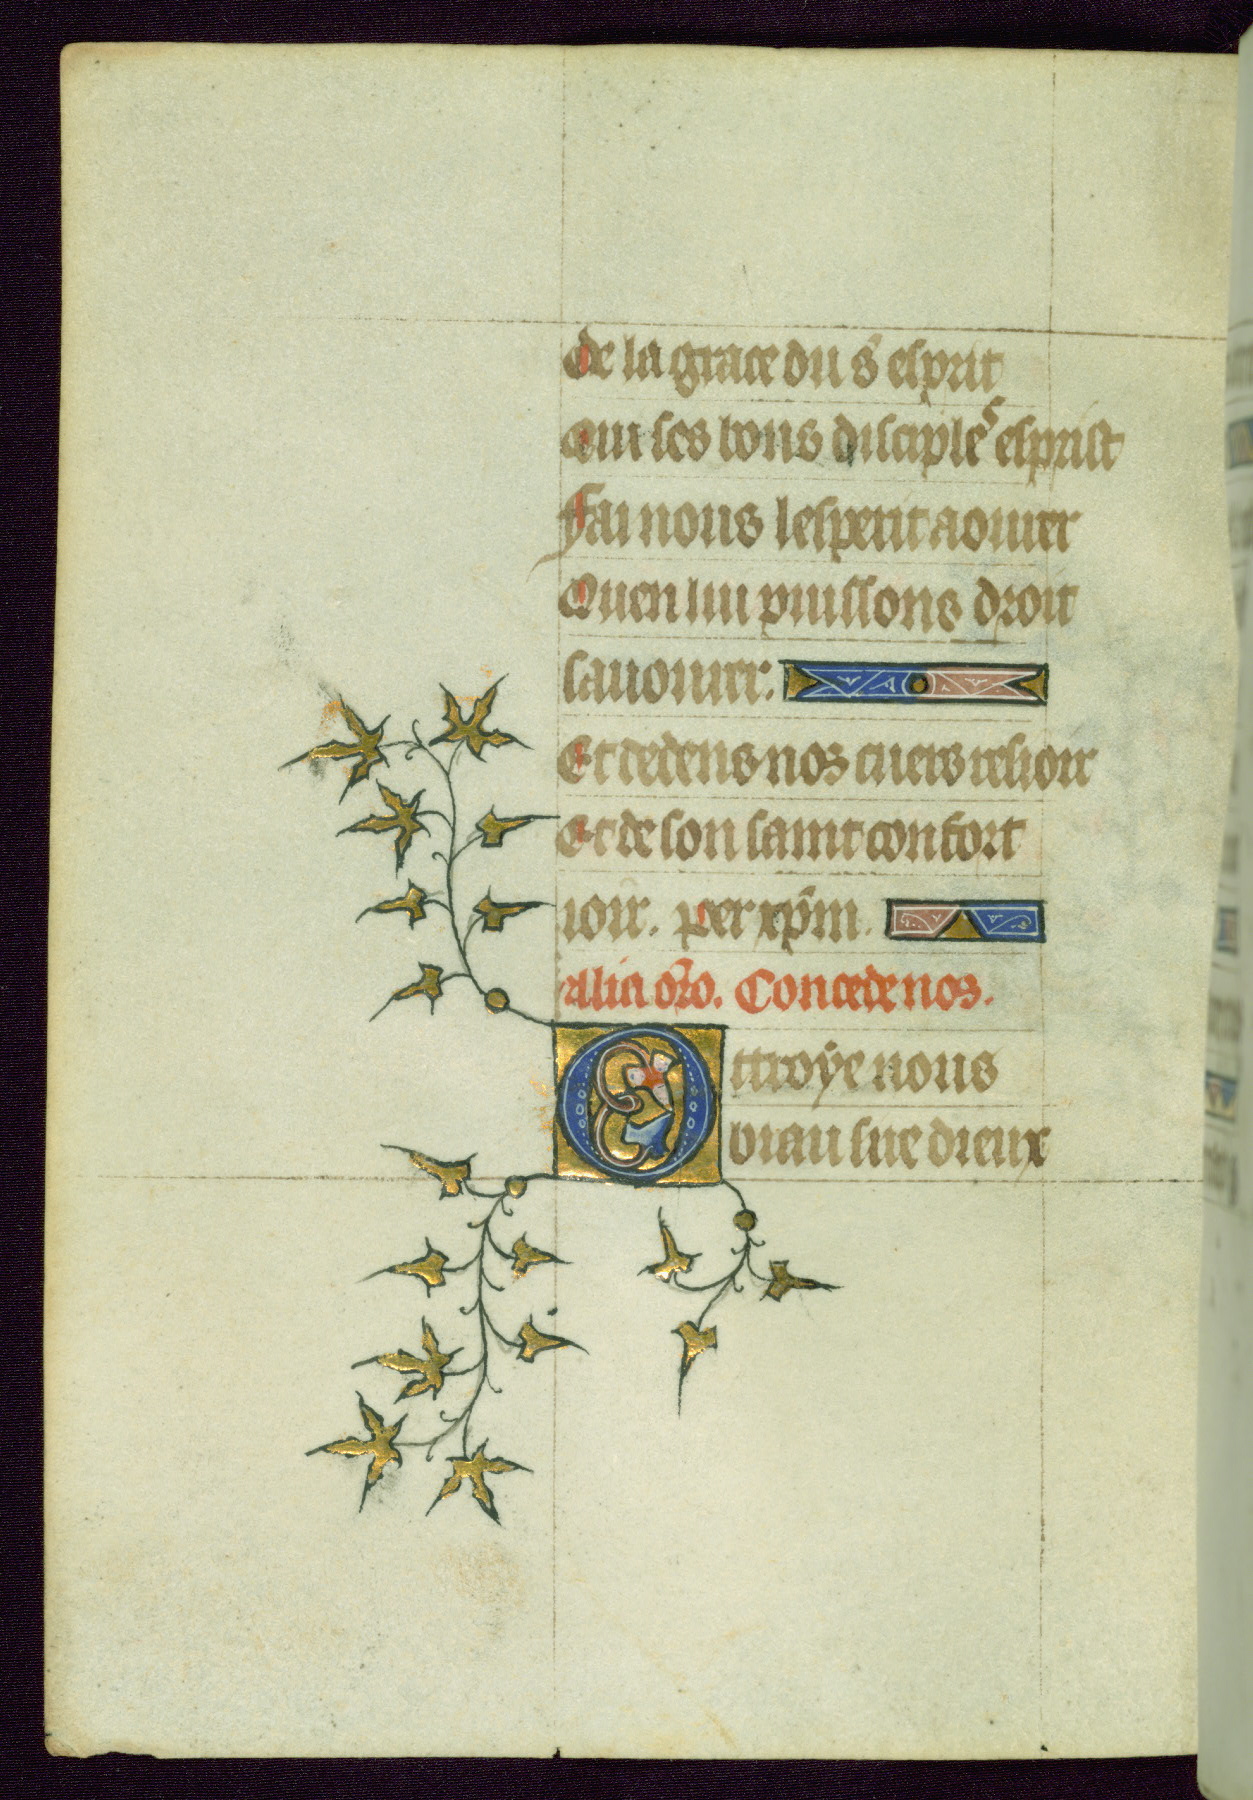 De la grace du s' esprit
Qui ses bons disciples esprist
Fai nous lesperit a ouurer
Quen lui puissons droit
sauourer.
Et dedens nos cuers restoir
Et de son saint confort
ioir. per xp̄m.
alia or̄o. Concede nos.
Ottroÿe nous
biau sire dieux